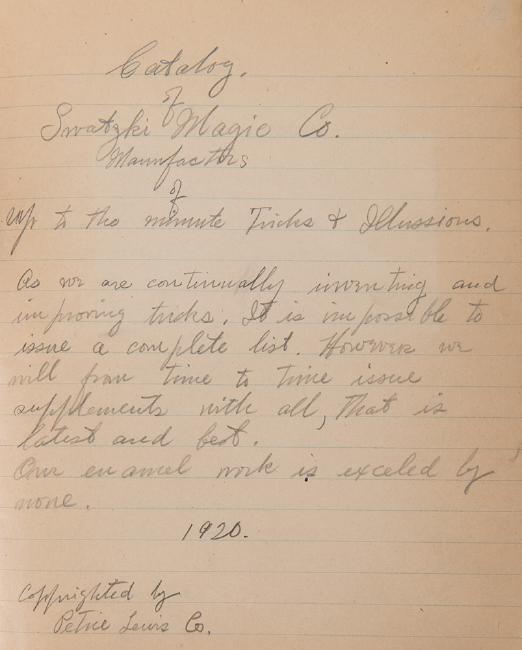 Catalog.
of
Swatzki Magic Co.
Manufactors
of
up to the minute Tricks & Illussions.
As we are continually inventing and
improving tricks. It is impossible to
issue a complete list. However we
will from time to time issue
supplements with all, that is
latest and best.
Our enamel work is exceled by
none.
1920.
Copprighted by
Petrie Lewis Co.